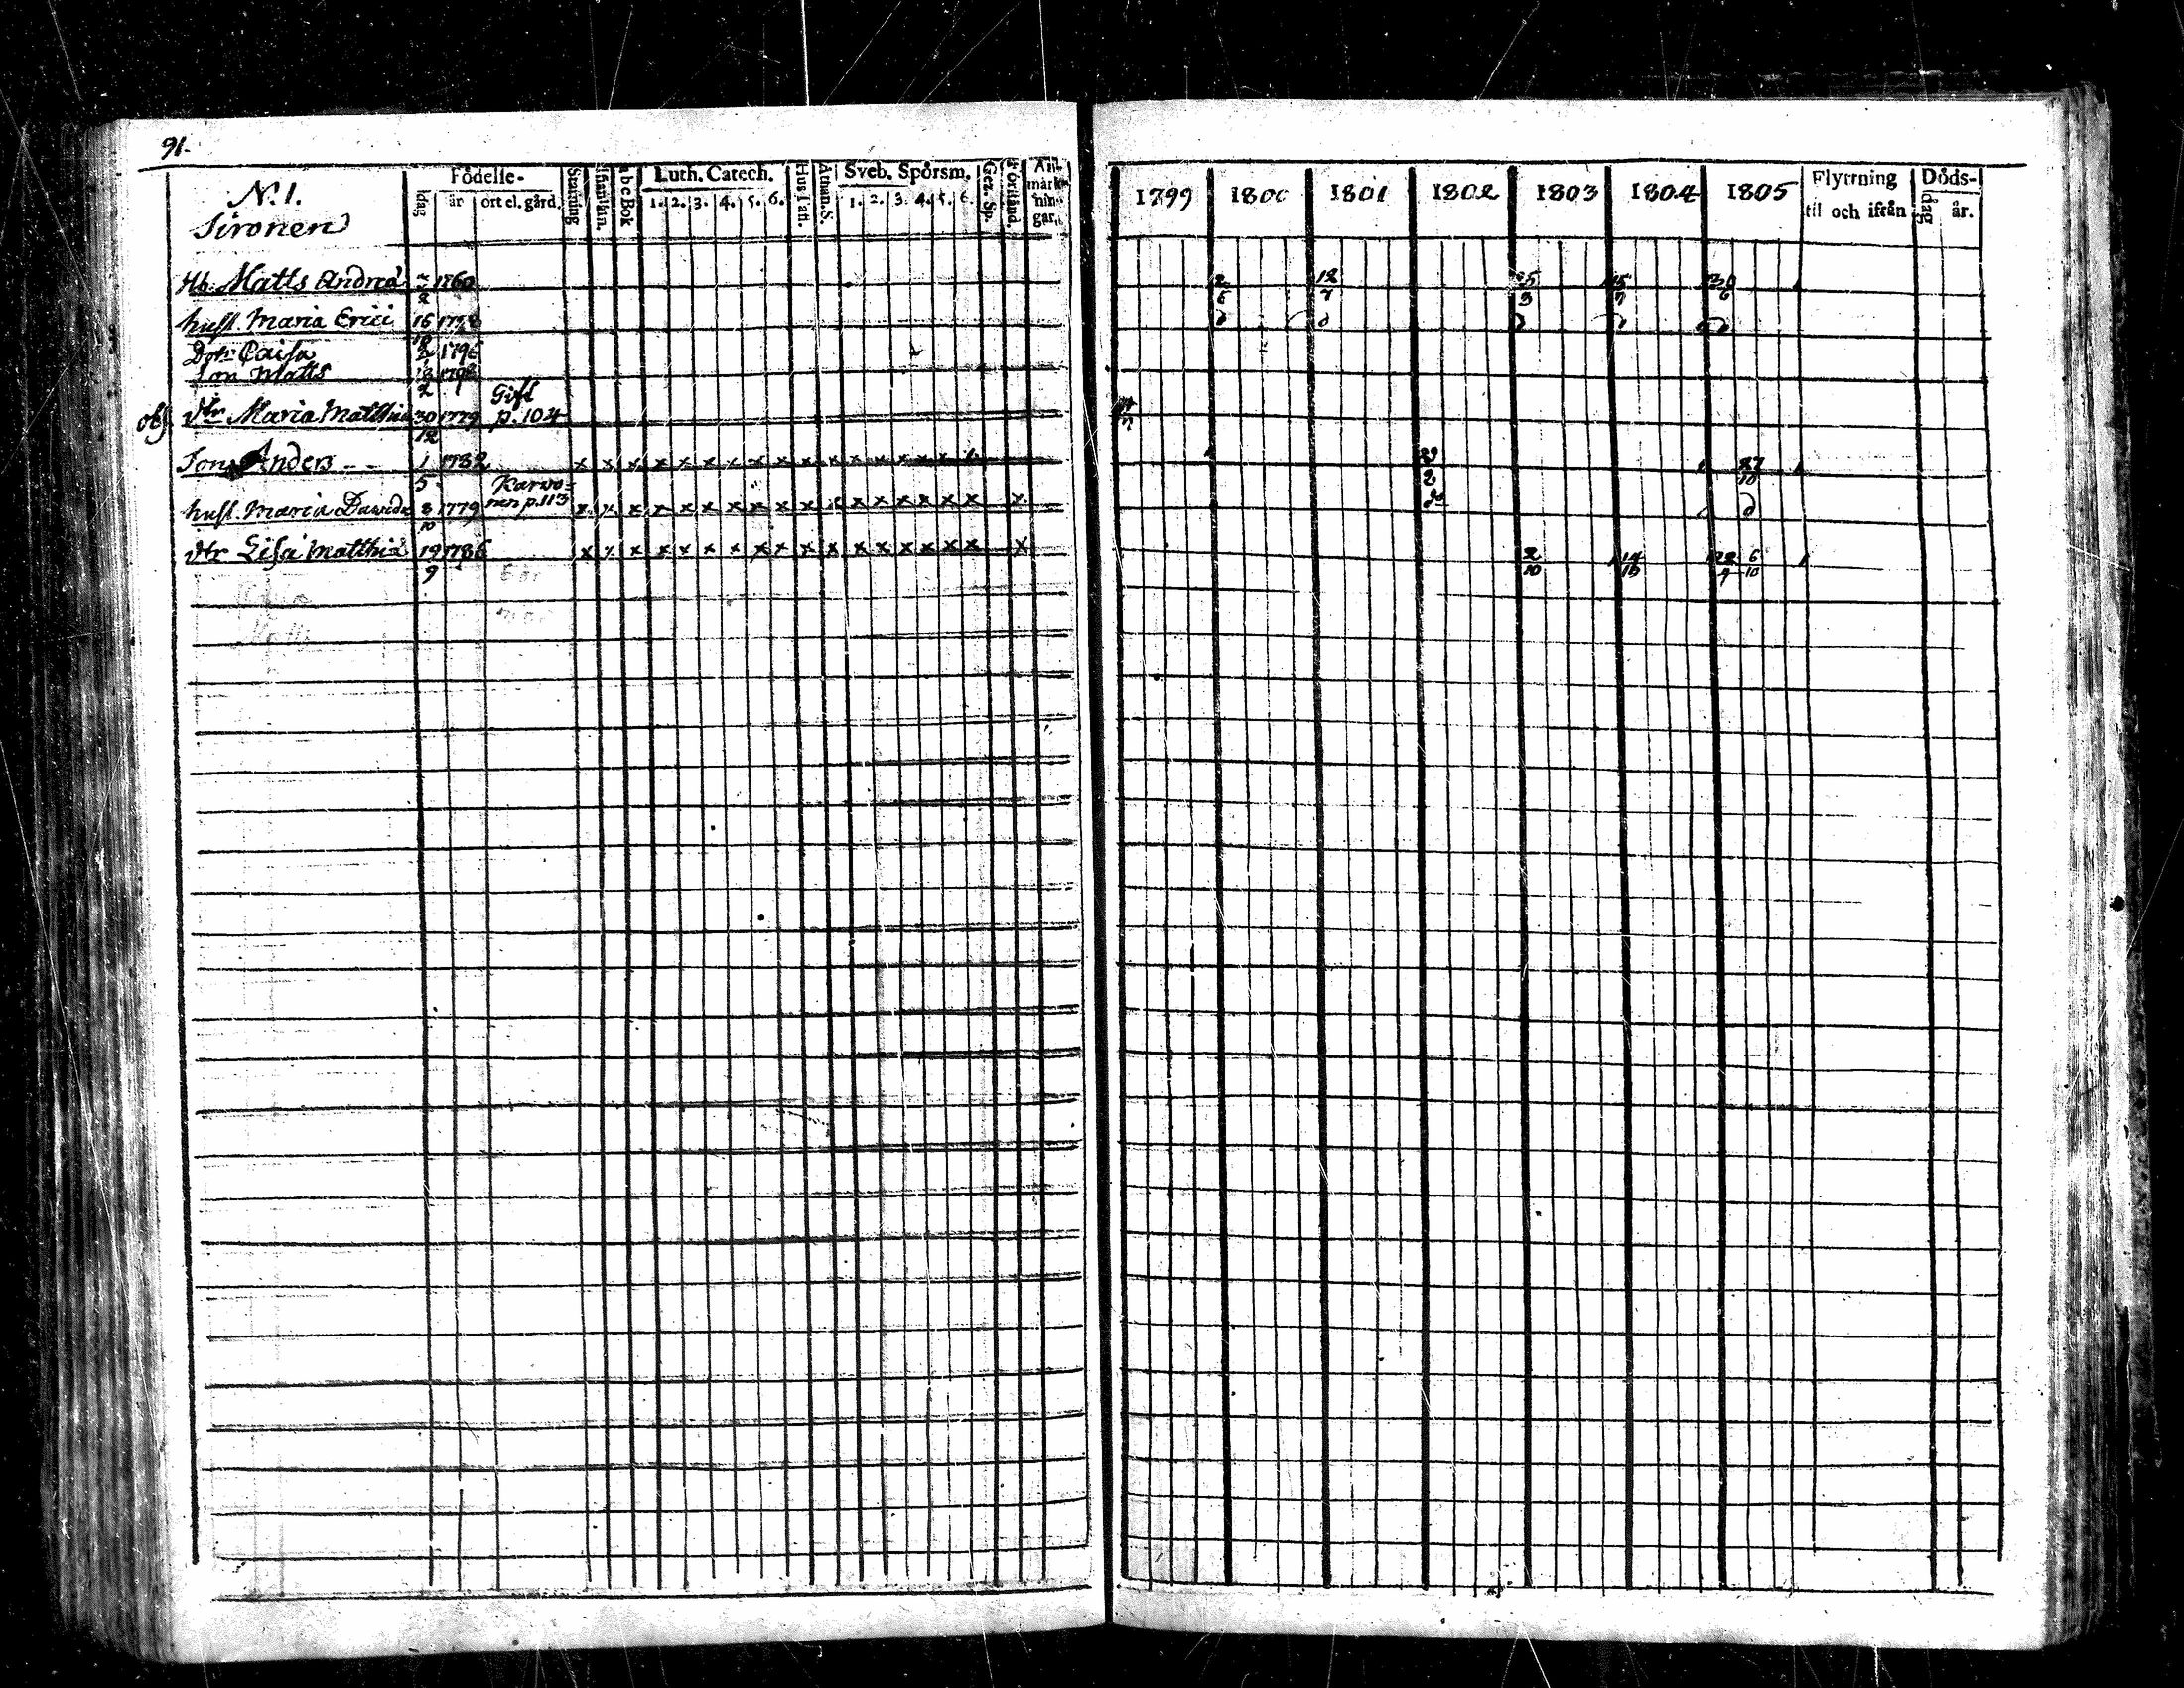 91.
N.1.
Sironen
Födelse-
dag
år
ort el. gård.
Stafning
Innanläsn.
abcBok
Luth. Catech.
1. 2. 3. 4. 5. 6.
Hus Tafl.
Athan. S.
Sveb. Spörsm.
1. 2. 3. 4. 5. 6.
Gez. Sp.
Förstånd.
An-
märk-
nin-
gar.
1799 1800 1801 1802 1803 1804 1805
Flyttning
til och ifrån
Döds-
dag
år.
Hb. Matts Andreæ 2 1760 2/5 12/7 25/3 15/7 30/6
hust. Maria Erici 16
Dotr Caisa 2 1796
Son Matts 1798
2
Gift
obs dtr Maria Matthiæ 30/12 1779 p. 104
Son Anders - - 1/5 1782 x x x x x x x x x x x x x x x x 27/10
Karwo=
hust. Maria Davids 8/10 1779 nen p. 113 x x x x x x x x x x x x x x x x x x do
dtr Lisa Matthiæ 19/9 1786 x x x x x x x x x x x x x x x x x x 2/10 14/10 22/7 6/10
Matts